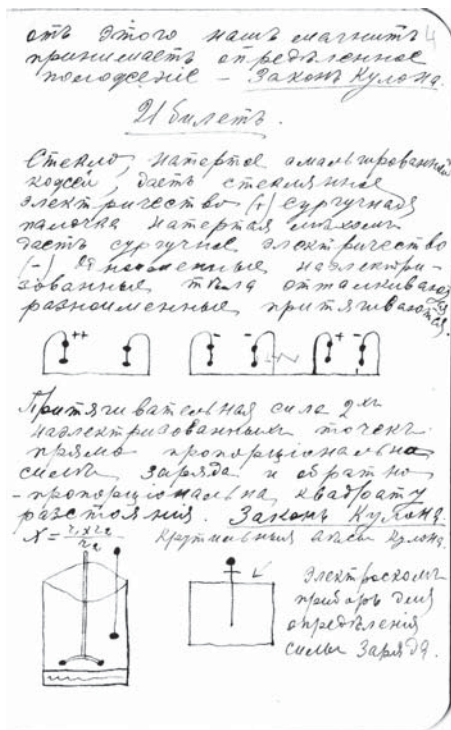 отъ этого нашъ магнитъ 4
принимаетъ опредѣленное
положенiе – Законъ Кулона.
21 билетъ.
Стекло, натертое амальгированной
кожей, даетъ стеклянное
электричество (+) сургучная
палочка натертая мѣхомъ
даетъ сургучное электричество
(-) Одноименные наэлектри-
зованные тѣла отталкиваются
разноименные притягиваются.
++ - - + -
Притягивательная сила 2хъ
наэлектризованныхъ точекъ
прямо пропорцiональна
силѣ заряда и обратно
-пропорцiональна квадрату
разстоянiя. Законъ Кулона.
Крутильныя вѣсы Кулона.
Электроскопъ
приборъ для
опредѣленiя
силы заряда.